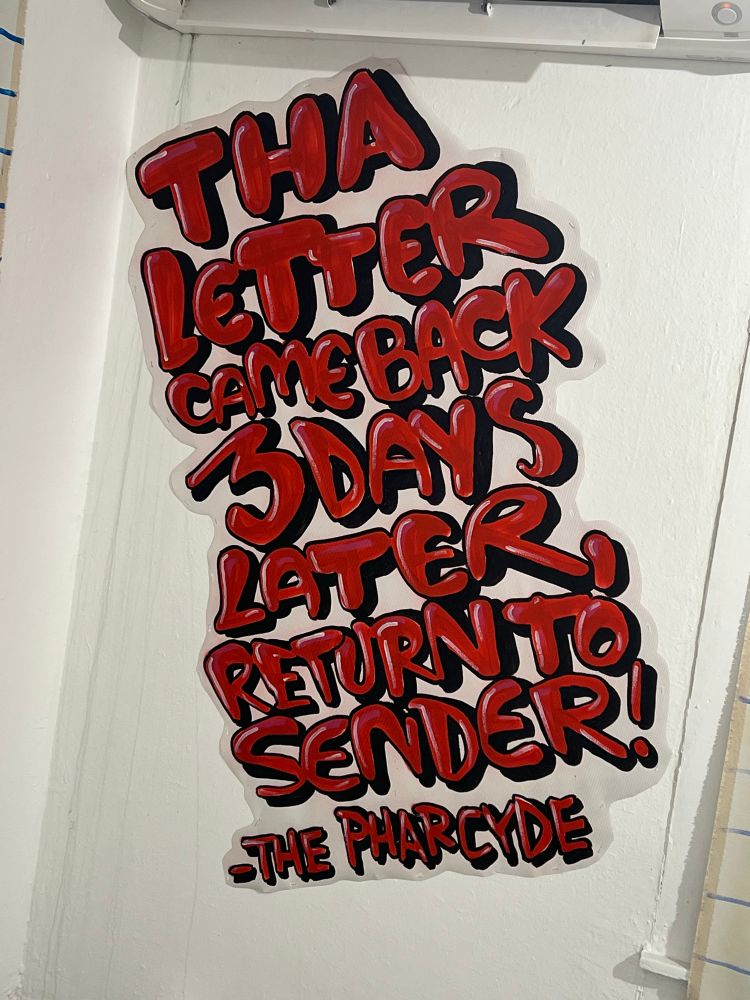 THA
LETTER
CAME BACK
3 DAYS
LATER,
RETURN TO
SENDER!
-THE PHARCYDE